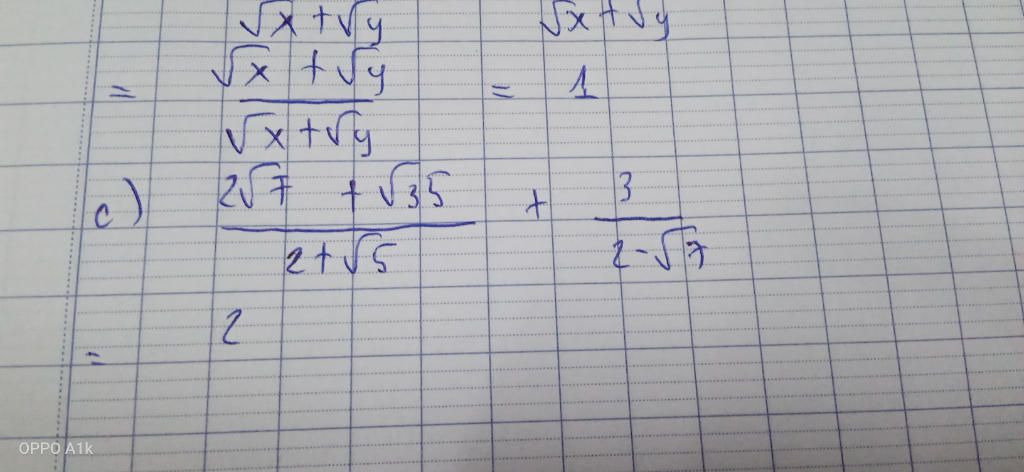 √x + √y √x + √y
= √x + √y / √x + √y = 1
c) 2√7 + √35 / 2 + √5 + 3 / 2 - √7
= 2
OPPO A1k